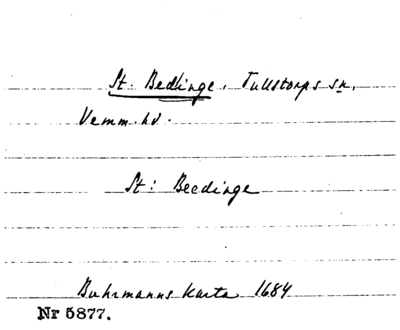 St. Bedlinge, Tullstorps sn,
Vemm. hd.
St: Beedinge
Buhrmanns karta 1684
Nr 5877.